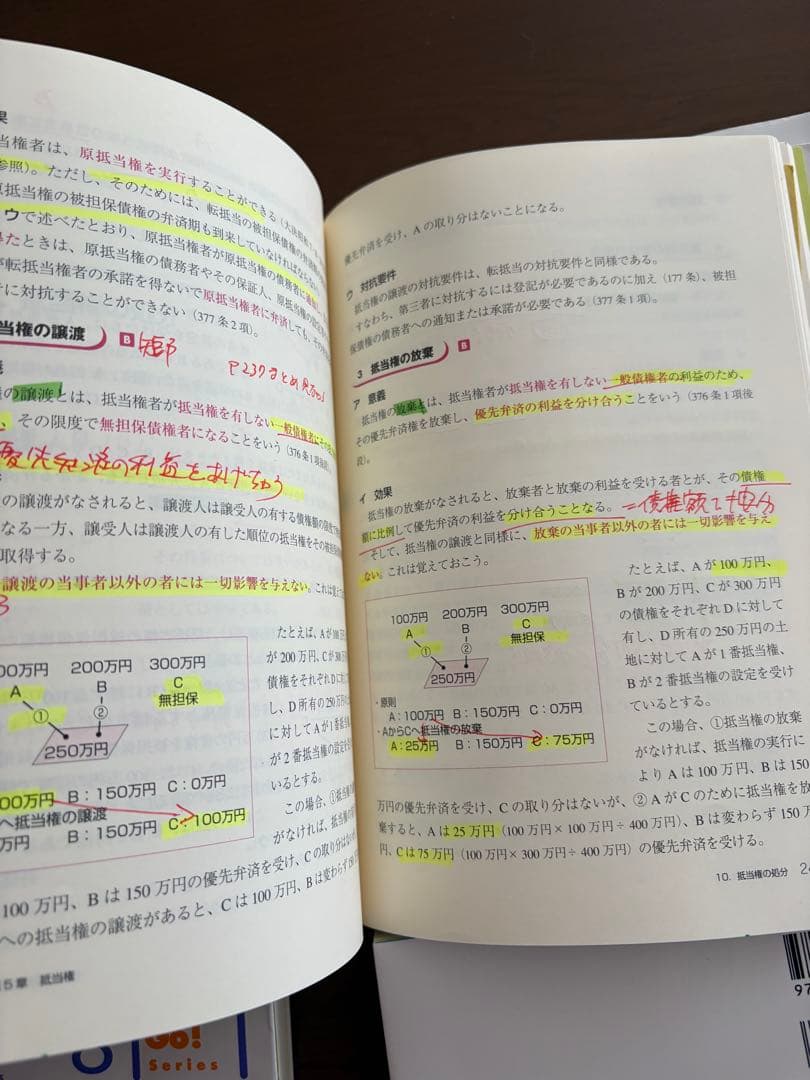 果
当権者は、原抵当権を実行することができる
参照)。ただし、そのためには、転抵当の被担保債権の弁済期
原抵当権の被担保債権の弁済期も到来していなければならない
ウで述べたとおり、原抵当権者が原抵当権の債務者に通知
得たときは、原抵当権の債務者やその保証人、原抵当権の設定者
が転抵当権者の承諾を得ないで原抵当権者に弁済しても、その
者に対抗することができない(377条2項)。
当権の譲渡 B
P237まとめ見ろ
の譲渡とは、抵当権者が抵当権を有しない一般債権者に
、その限度で無担保債権者になることをいう(376条1項後段)
優先弁済の利益をあげちゃう
の譲渡がなされると、譲渡人は譲受人の有する債権額の限度で
なる一方、譲受人は譲渡人の有した順位の抵当権をその被担保
取得する。
譲渡の当事者以外の者には一切影響を与えない。これは覚えて
00万円 200万円 300万円
A B C
無担保
① ②
250万円
00万円 B:150万円 C:0万円
へ抵当権の譲渡
万円 B:150万円 C:100万円
たとえば、Aが100万
が200万円、Cが300
債権をそれぞれDに対
し、D所有の250万円の
に対してAが1番抵当
が2番抵当権の設定を
いるとする。
この場合、①抵当権の
がなければ、抵当権の実
100万円、Bは150万円の優先弁済を受け、Cの取り分はな
への抵当権の譲渡があると、Cは100万円、Bは変わらず150
5章 抵当権
Go!
Series
優先弁済を受け、Aの取り分はないことになる。
ウ 対抗要件
抵当権の譲渡の対抗要件は、転抵当の対抗要件と同様である。
すなわち、第三者に対抗するには登記が必要であるのに加え(177条)、被担
保債権の債務者への通知または承諾が必要である(377条1項)。
3 抵当権の放棄 B
ア 意義
抵当権の放棄とは、抵当権者が抵当権を有しない一般債権者の利益のため、
その優先弁済権を放棄し、優先弁済の利益を分け合うことをいう(376条1項後
段)。
イ 効果
抵当権の放棄がなされると、放棄者と放棄の利益を受ける者とが、その債権
額に比例して優先弁済の利益を分け合うことなる。=債権額で按分
そして、抵当権の譲渡と同様に、放棄の当事者以外の者には一切影響を与え
ない。これは覚えておこう。
100万円 200万円 300万円
A B C
無担保
① ②
250万円
・原則
A:100万円 B:150万円 C:0万円
・AからCへ抵当権の放棄
A:25万円 B:150万円 C:75万円
たとえば、Aが100万円、
Bが200万円、Cが300万円
の債権をそれぞれDに対して
有し、D所有の250万円の土
地に対してAが1番抵当権、
Bが2番抵当権の設定を受け
ているとする。
この場合、①抵当権の放棄
がなければ、抵当権の実行に
よりAは100万円、Bは150
万円の優先弁済を受け、Cの取り分はないが、②AがCのために抵当権を放
棄すると、Aは25万円(100万円×100万円÷400万円)、Bは変わらず150万
円、Cは75万円(100万円×300万円÷400万円)の優先弁済を受ける。
10. 抵当権の処分
97